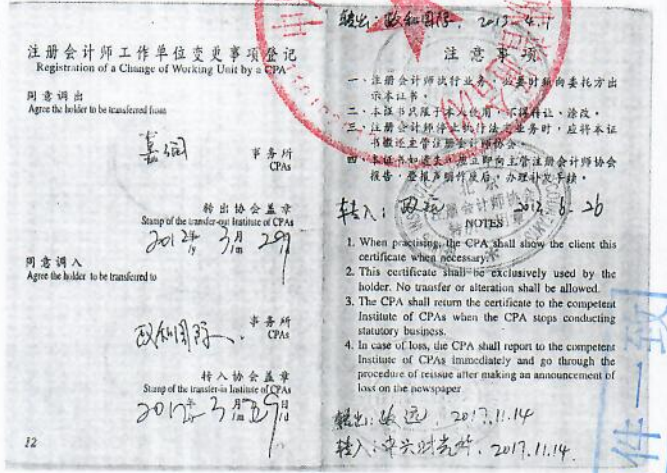 注册会计师工作单位变更事项登记
Registration of a Change of Working Unit by a CPA
同意调出
Agree the holder to be transferred from
事务所
CPAs
转出协会盖章
Stamp of the transfer-out Institute of CPAs
2012年 3月 29日
/y /m /d
同意调入
Agree the holder to be transferred to
事务所
CPAs
转入协会盖章
Stamp of the transfer-in Institute of CPAs
2012年 3月 29日
/y /m /d
12
转出:政和国际. 2013-4.1
注意事项
一、注册会计师执行业务,必要时须向委托方出
示本证书。
二、本证书只限于本人使用,不得转让、涂改。
三、注册会计师停止执行法定业务时,应将本证
书缴还主管注册会计师协会。
四、本证书如遗失,应立即向主管注册会计师协会
报告,登报声明作废后,办理补发手续。
转入:
NOTES
1. When practising, the CPA shall show the client this
certificate when necessary.
2. This certificate shall be exclusively used by the
holder. No transfer or alteration shall be allowed.
3. The CPA shall return the certificate to the competent
Institute of CPAs when the CPA stops conducting
statutory business.
4. In case of loss, the CPA shall report to the competent
Institute of CPAs immediately and go through the
procedure of reissue after making an announcement of
loss on the newspaper.
转出:致远, 2017.11.14
转入:中兴财光华. 2017.11.14.
件一致